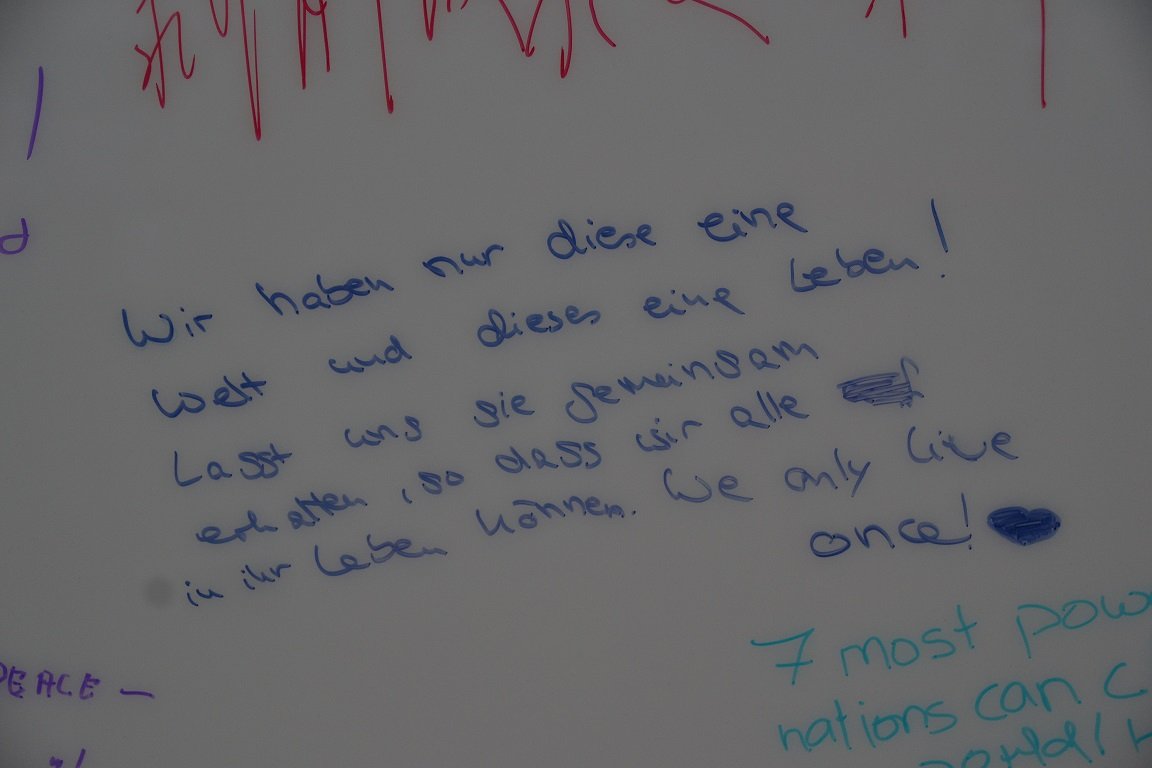 d
Wir haben nur diese eine
Welt und dieses eine Leben!
Lasst uns sie gemeinsam
erhalten, so dass wir alle
in ihr Leben können. We only live
once!
PEACE —
7 most
nations can
world!